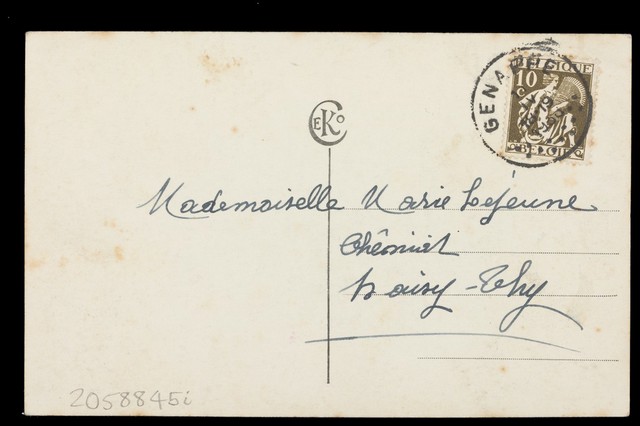 GENAPPE
BELGIQUE
10
c
BELGIE
EKO
Mademoiselle Marie Lejeune
Chemist
Baisy-Thy
2058845i